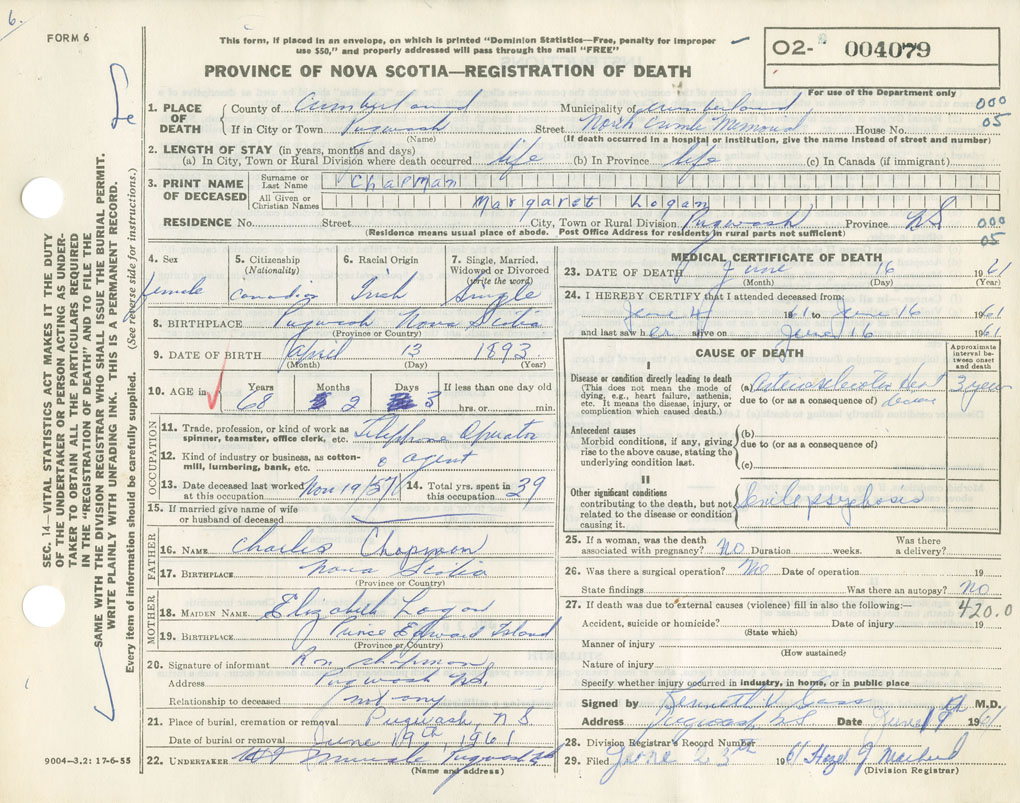 6.
FORM 6
This form, if placed in an envelope, on which is printed "Dominion Statistics—Free, penalty for improper
use $50," and properly addressed will pass through the mail "FREE"
PROVINCE OF NOVA SCOTIA—REGISTRATION OF DEATH
O2- 004079
For use of the Department only
1. PLACE OF DEATH { County of Cumberland Municipality of Cumberland 000
If in City or Town Pugwash Street North Cumb Memorial House No. 05
(Name) (If death occurred in a hospital or institution, give the name instead of street and number)
2. LENGTH OF STAY (in years, months and days)
(a) In City, Town or Rural Division where death occurred life (b) In Province life (c) In Canada (if immigrant)
3. PRINT NAME OF DECEASED { Surname or Last Name Chapman
All Given or Christian Names Margaret Logan
RESIDENCE No. Street City, Town or Rural Division Pugwash Province N S 000
(Residence means usual place of abode. Post Office Address for residents in rural parts not sufficient) 05
4. Sex 5. Citizenship (Nationality) 6. Racial Origin 7. Single, Married, Widowed or Divorced (write the word)
female Canadian Irish Single
8. BIRTHPLACE Pugwash Nova Scotia
(Province or Country)
9. DATE OF BIRTH April 13 1893
(Month) (Day) (Year)
10. AGE in Years Months Days If less than one day old
68 2 3 hrs. or min.
OCCUPATION
11. Trade, profession, or kind of work as spinner, teamster, office clerk, etc. Telephone Operator
12. Kind of industry or business, as cotton-mill, lumbering, bank, etc. & agent
13. Date deceased last worked at this occupation Nov 19/57 14. Total yrs. spent in this occupation 39
15. If married give name of wife or husband of deceased
FATHER
16. NAME Charles Chapman
17. BIRTHPLACE Nova Scotia
(Province or Country)
MOTHER
18. MAIDEN NAME Elizabeth Logan
19. BIRTHPLACE Prince Edward Island
(Province or Country)
20. Signature of informant Ron Chapman
Address Pugwash N.S.
Relationship to deceased not any
21. Place of burial, cremation or removal Pugwash, N S
Date of burial or removal June 19th, 1961
22. UNDERTAKER Pugwash
(Name and address)
MEDICAL CERTIFICATE OF DEATH
23. DATE OF DEATH June 16 1961
(Month) (Day) (Year)
24. I HEREBY CERTIFY that I attended deceased from:
June 4 1961 to June 16 1961
and last saw her alive on June 16 1961
CAUSE OF DEATH
Approximate interval between onset and death
I
Disease or condition directly leading to death (a) Arteriosclerotic Heart 3 years
(This does not mean the mode of dying, e.g., heart failure, asthenia, etc. It means the disease, injury, or complication which caused death.) due to (or as a consequence of) disease
Antecedent causes (b)
Morbid conditions, if any, giving rise to the above cause, stating the underlying condition last. due to (or as a consequence of)
(c)
II
Other significant conditions
contributing to the death, but not related to the disease or condition causing it. Senile psychosis
25. If a woman, was the death associated with pregnancy? No Duration weeks. Was there a delivery?
26. Was there a surgical operation? No Date of operation 19
State findings Was there an autopsy? No
27. If death was due to external causes (violence) fill in also the following:— 420.0
Accident, suicide or homicide? Date of injury 19
(State which)
Manner of injury
(How sustained)
Nature of injury
Specify whether injury occurred in industry, in home, or in public place
Signed by Kenneth V. M.D.
Address Pugwash N.S. Date June 19th 1961
28. Division Registrar's Record Number
29. Filed June 23rd 1961 Hazel J
(Division Registrar)
SEC. 14—VITAL STATISTICS ACT MAKES IT THE DUTY
OF THE UNDERTAKER OR PERSON ACTING AS UNDER-
TAKER TO OBTAIN ALL THE PARTICULARS REQUIRED
IN THE "REGISTRATION OF DEATH" AND TO FILE THE
SAME WITH THE DIVISION REGISTRAR WHO SHALL ISSUE THE BURIAL PERMIT.
WRITE PLAINLY WITH UNFADING INK. THIS IS A PERMANENT RECORD.
Every item of information should be carefully supplied. (See reverse side for instructions.)
9004—3,2: 17-6-55